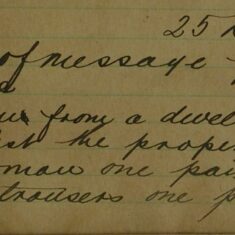 25
of message
from a dwel
the proper
man one pai
trousers one p